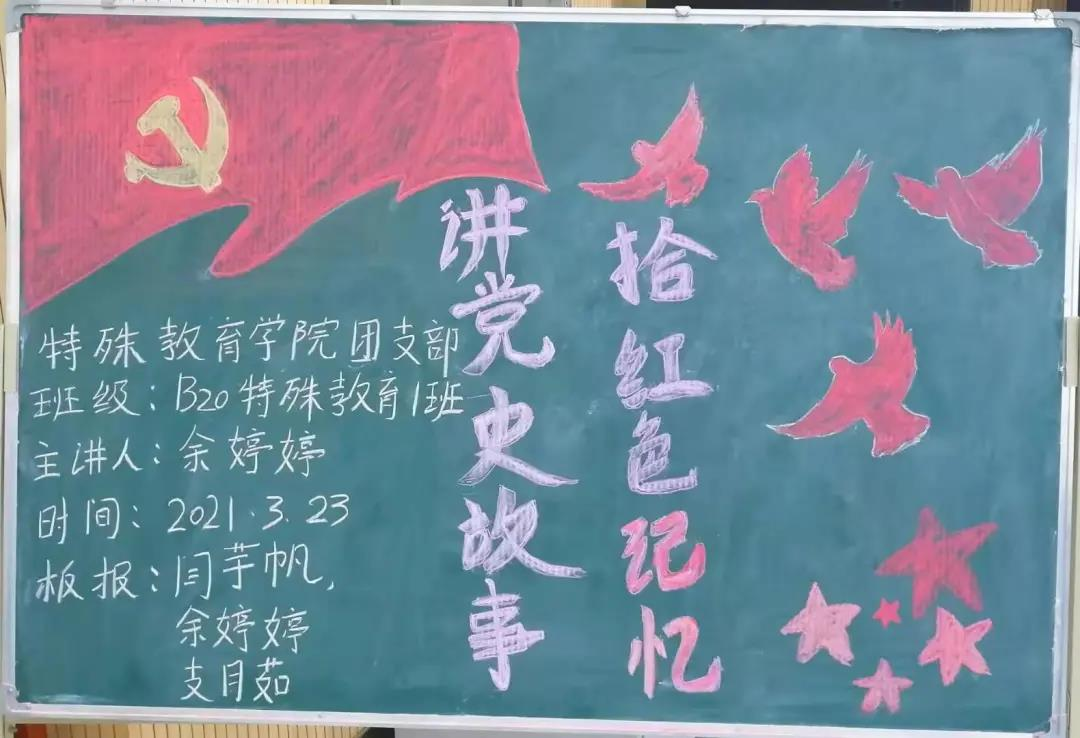 讲党史故事
拾红色记忆
特殊教育学院团支部
班级：B20特殊教育1班
主讲人：余婷婷
时间：2021.3.23
板报：闫芋帆，
余婷婷
支月茹